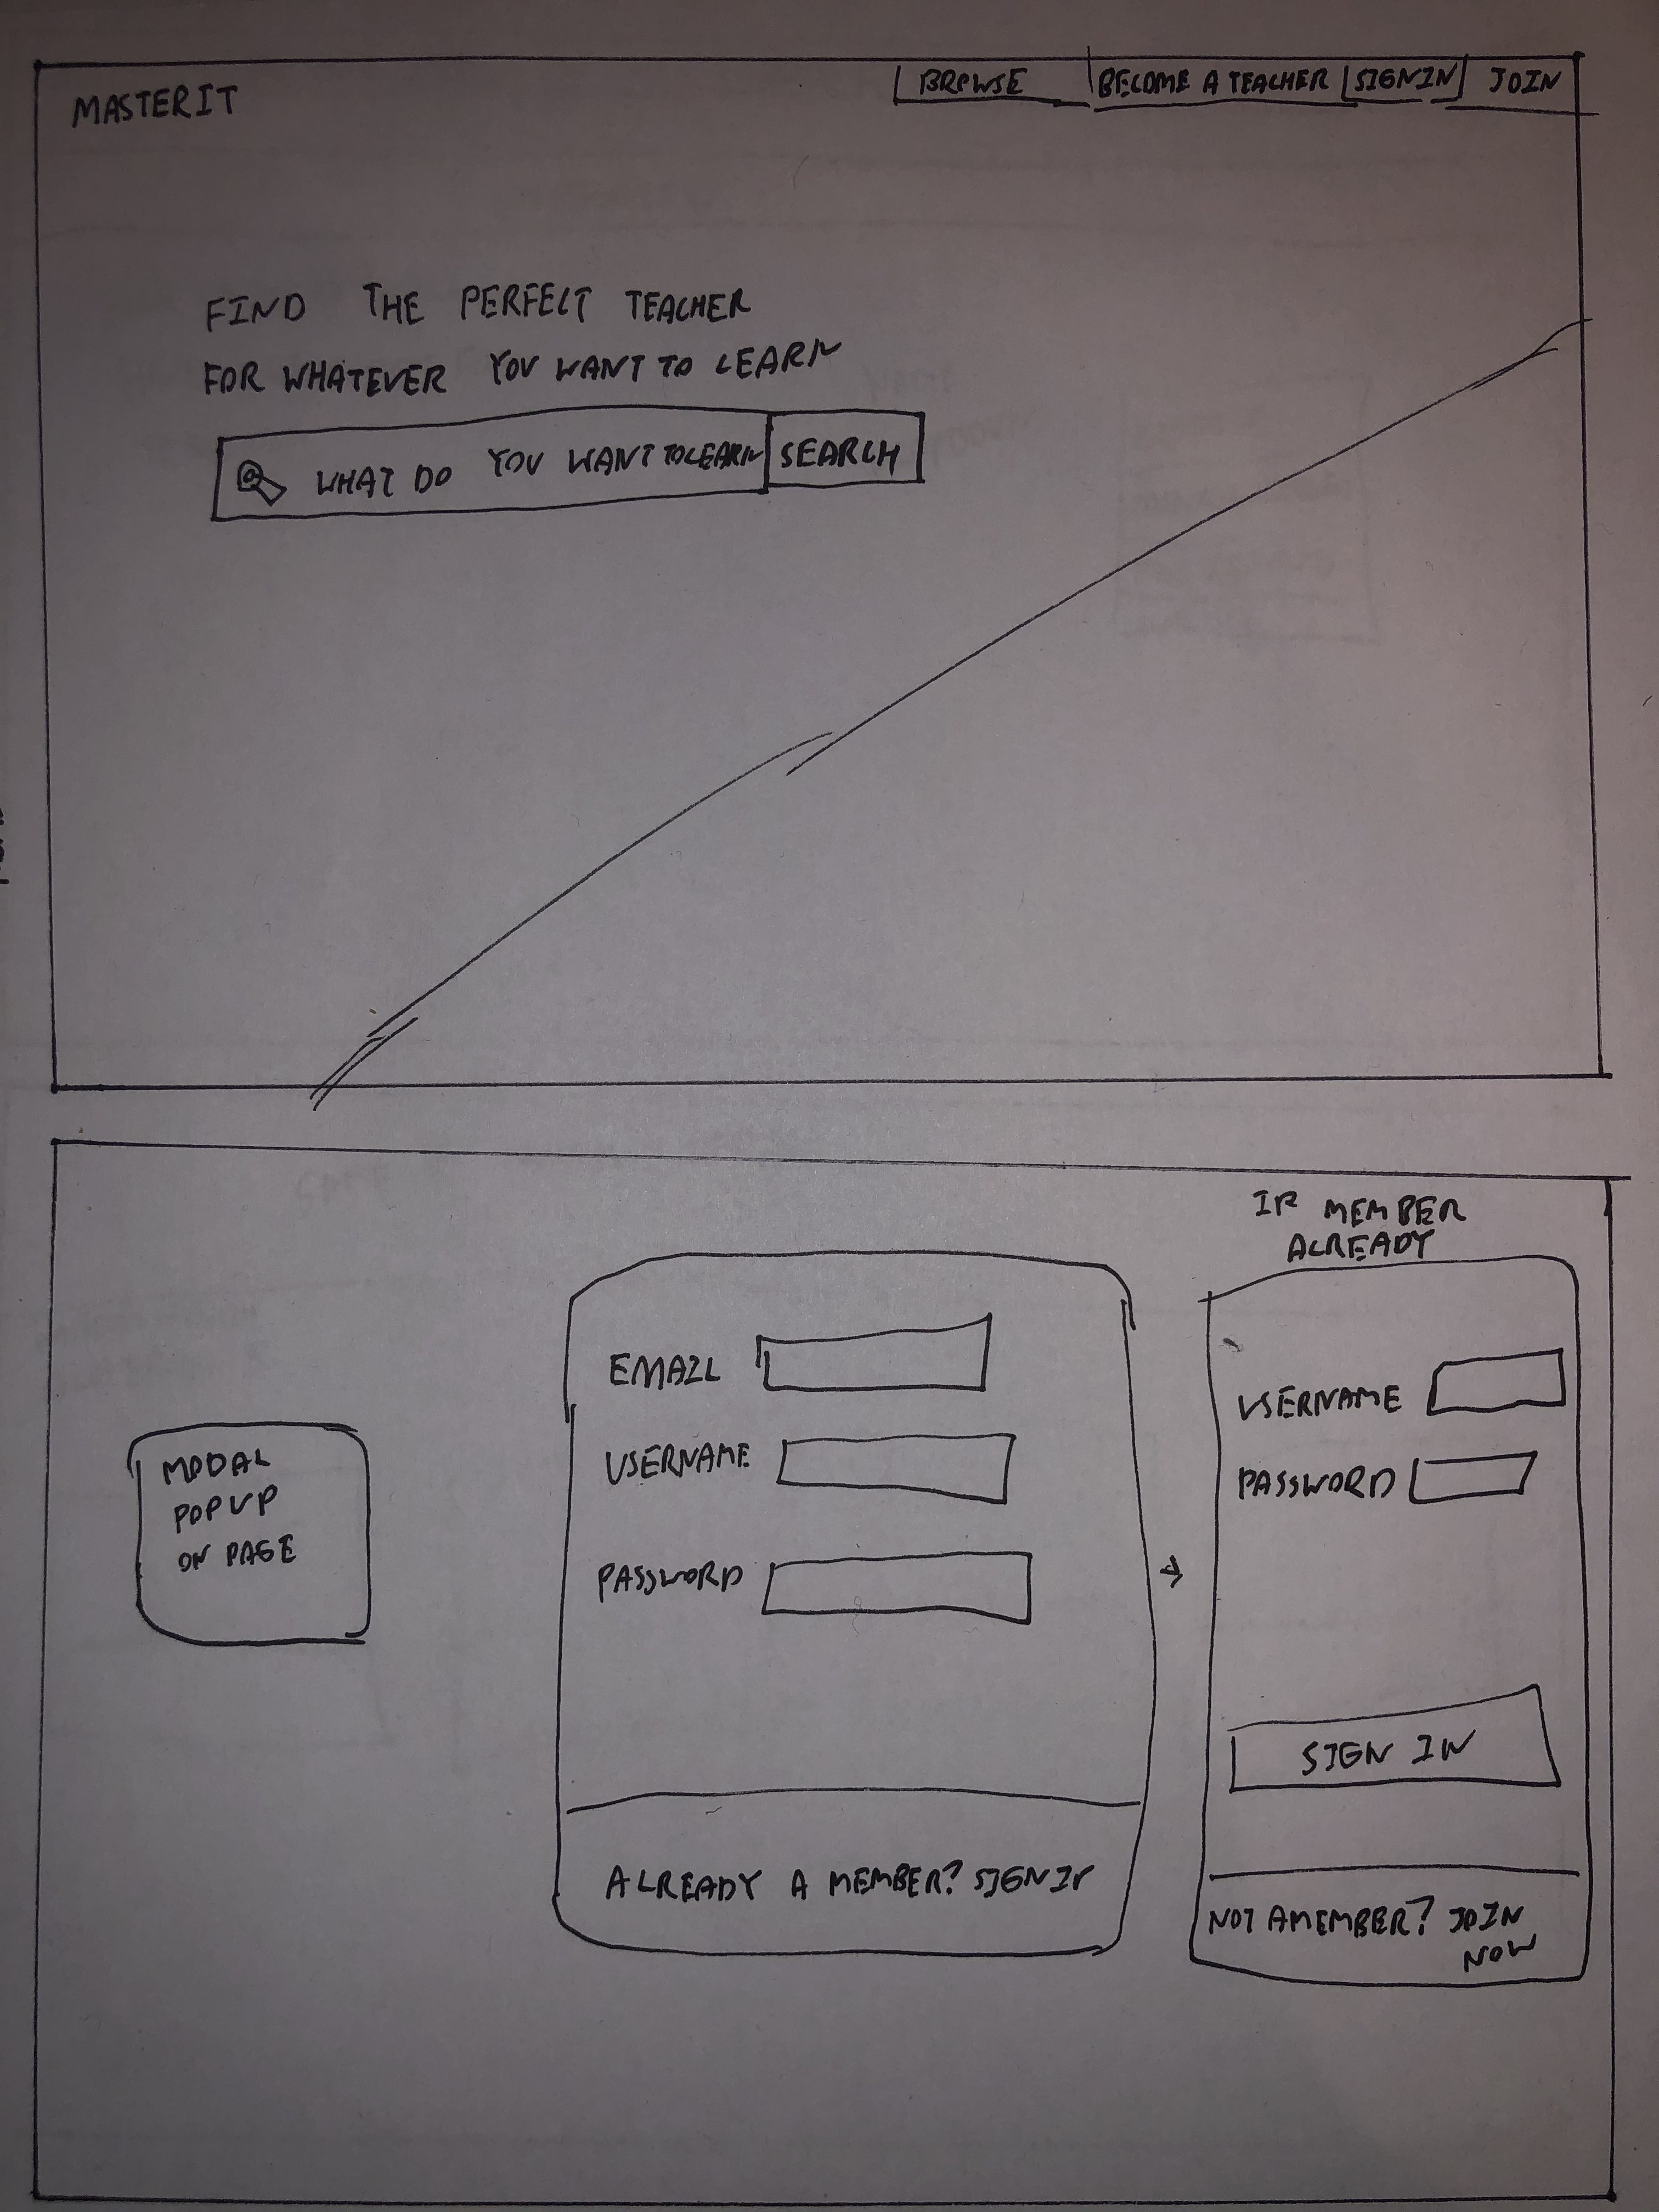 MASTERIT
BROWSE
BECOME A TEACHER
SIGN IN
JOIN
FIND THE PERFECT TEACHER
FOR WHATEVER YOU WANT TO LEARN
WHAT DO YOU WANT TO LEARN
SEARCH
MODAL
POPUP
ON PAGE
EMAIL
USERNAME
PASSWORD
ALREADY A MEMBER? SIGN IN
IF MEMBER
ALREADY
USERNAME
PASSWORD
SIGN IN
NOT A MEMBER? JOIN
NOW